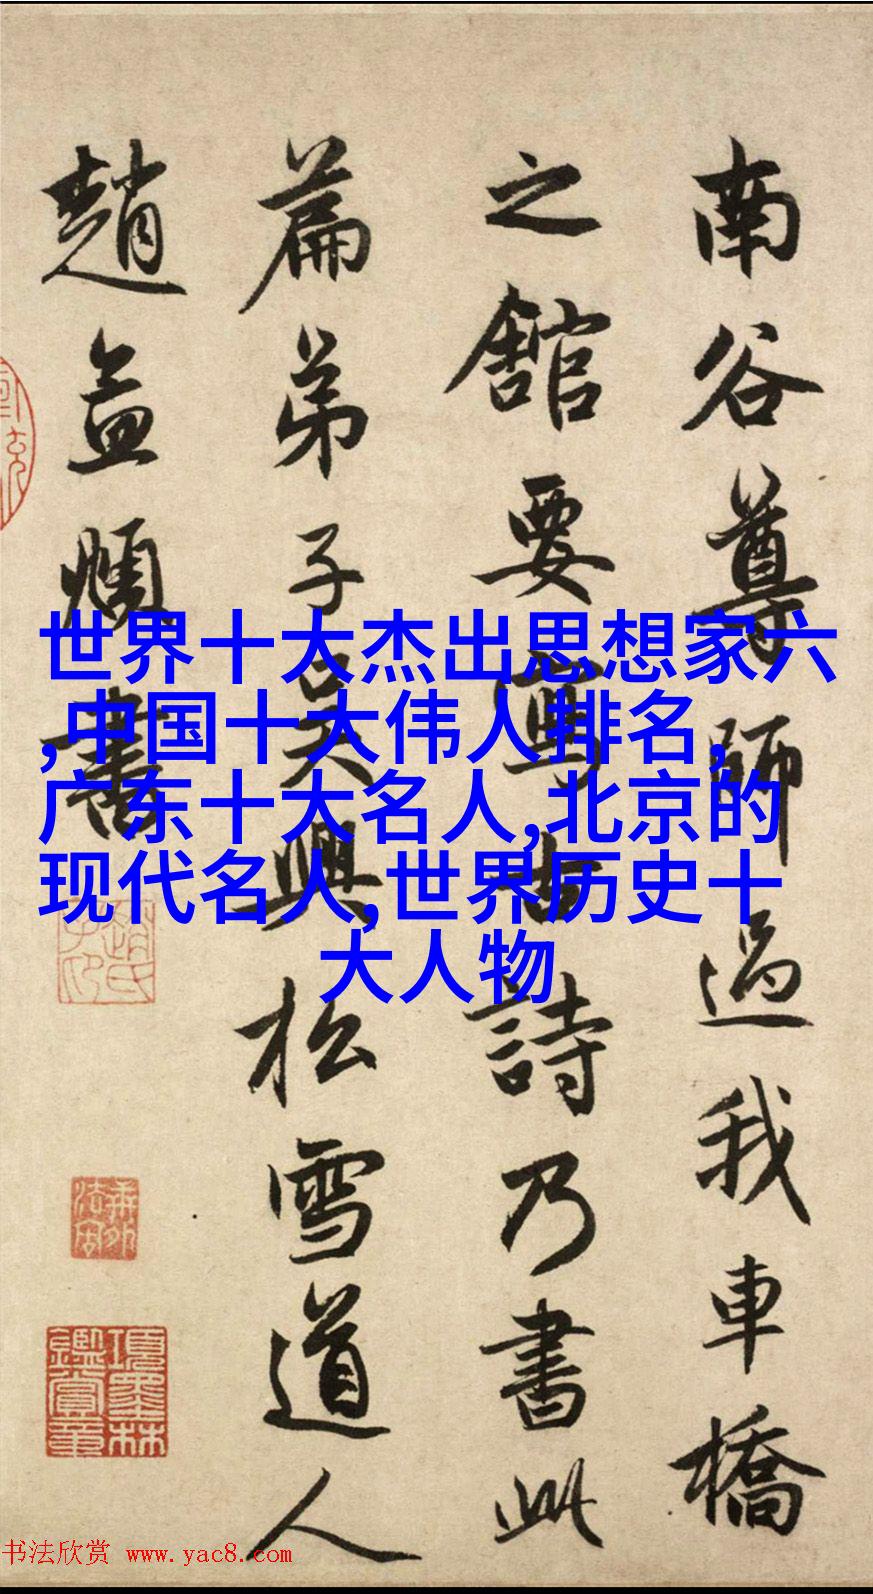 南谷尊師過我車橋
之舘要寫古詩乃書此
篇弟子吳興松雪道人
趙孟頫書
世界十大杰出思想家六
,中国十大伟人排名,
广东十大名人,北京的
现代名人,世界历史十
大人物
趙氏子印
項墨林鑑賞章
书法欣赏 www.yac8.com